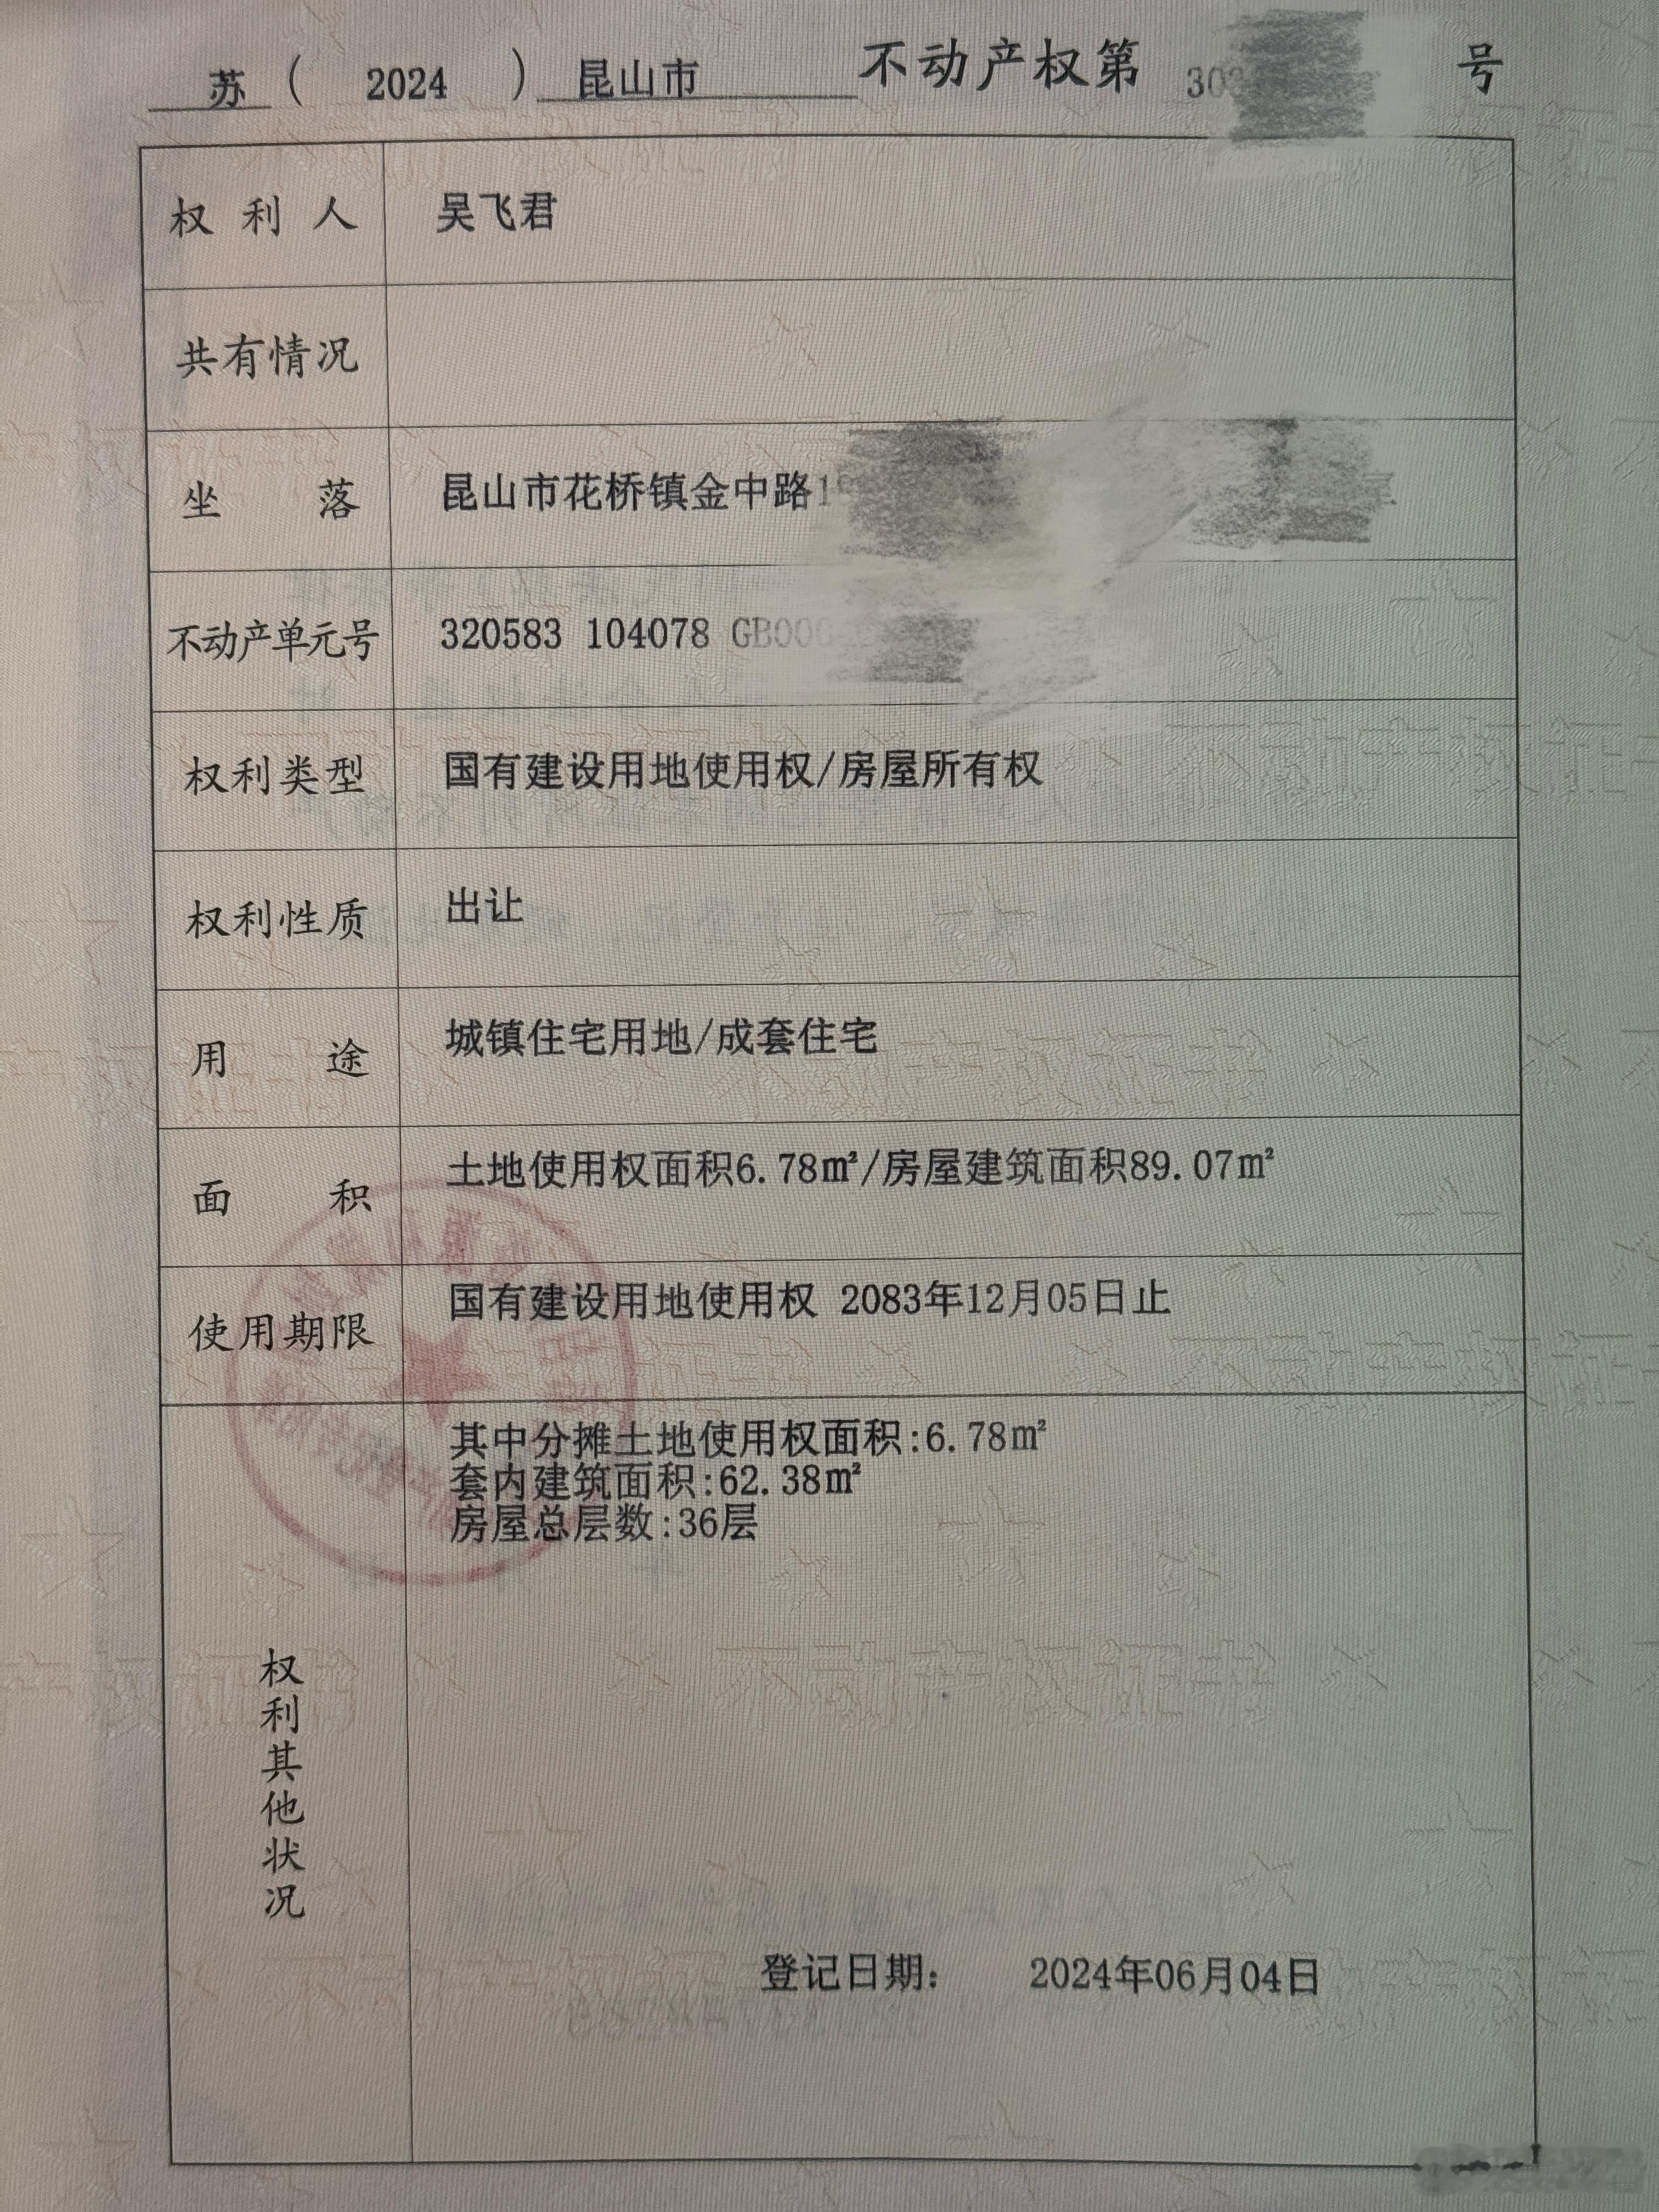 苏（ 2024 ）昆山市 不动产权第 30 号
权利人 吴飞君
共有情况
坐落 昆山市花桥镇金中路1
不动产单元号 320583 104078 GB000
权利类型 国有建设用地使用权/房屋所有权
权利性质 出让
用途 城镇住宅用地/成套住宅
面积 土地使用权面积6.78㎡/房屋建筑面积89.07㎡
使用期限 国有建设用地使用权 2083年12月05日止
权利其他状况
其中分摊土地使用权面积:6.78㎡
套内建筑面积:62.38㎡
房屋总层数:36层
登记日期： 2024年06月04日